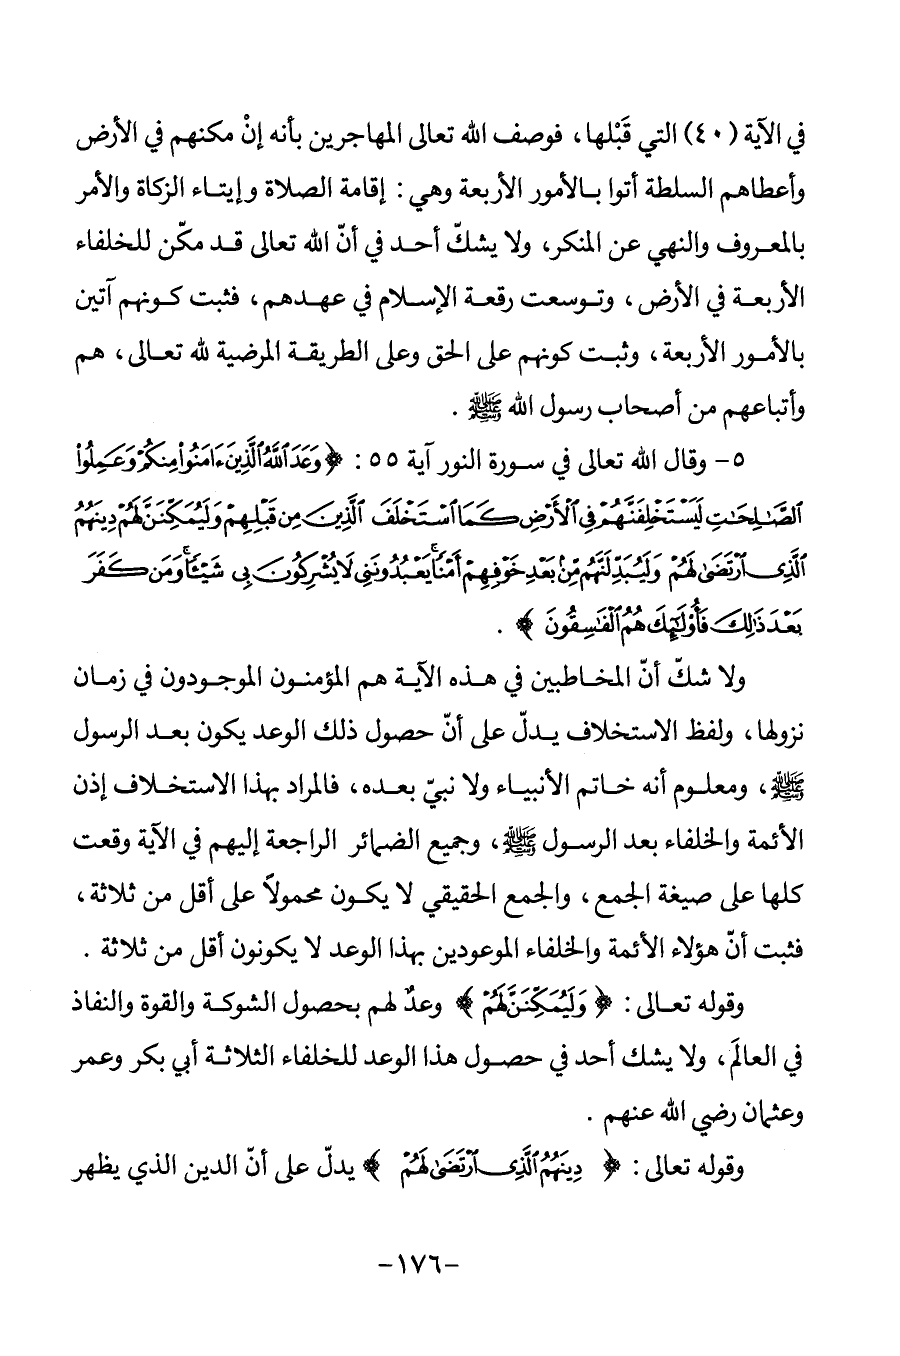 في الآية (٤٠) التي قَبْلها، فوصف الله تعالى المهاجرين بأنه إنْ مكنهم في الأرض
وأعطاهم السلطة أتوا بالأمور الأربعة وهي : إقامة الصلاة وإيتاء الزكاة والأمر
بالمعروف والنهي عن المنكر، ولا يشكّ أحد في أنّ الله تعالى قد مكّن للخلفاء
الأربعة في الأرض ، وتوسعت رقعة الإسلام في عهدهم ، فثبت كونهم آتين
بالأمور الأربعة ، وثبت كونهم على الحق وعلى الطريقة المرضية لله تعالى ، هم
وأتباعهم من أصحاب رسول الله ﷺ .
٥- وقال الله تعالى في سورة النور آية ٥٥ : ﴿ وَعَدَ ٱللَّهُ ٱلَّذِينَ ءَامَنُوا۟ مِنكُمْ وَعَمِلُوا۟
ٱلصَّـٰلِحَـٰتِ لَيَسْتَخْلِفَنَّهُمْ فِى ٱلْأَرْضِ كَمَا ٱسْتَخْلَفَ ٱلَّذِينَ مِن قَبْلِهِمْ وَلَيُمَكِّنَنَّ لَهُمْ دِينَهُمُ
ٱلَّذِى ٱرْتَضَىٰ لَهُمْ وَلَيُبَدِّلَنَّهُم مِّنۢ بَعْدِ خَوْفِهِمْ أَمْنًۭا ۚ يَعْبُدُونَنِى لَا يُشْرِكُونَ بِى شَيْـًۭٔا ۚ وَمَن كَفَرَ
بَعْدَ ذَٰلِكَ فَأُو۟لَـٰٓئِكَ هُمُ ٱلْفَـٰسِقُونَ ﴾ .
ولا شكّ أنّ المخاطبين في هذه الآية هم المؤمنون الموجودون في زمان
نزولها، ولفظ الاستخلاف يدلّ على أنّ حصول ذلك الوعد يكون بعد الرسول
ﷺ، ومعلوم أنه خاتم الأنبياء ولا نبيّ بعده، فالمراد بهذا الاستخلاف إذن
الأئمة والخلفاء بعد الرسول ﷺ، وجميع الضمائر الراجعة إليهم في الآية وقعت
كلها على صيغة الجمع ، والجمع الحقيقي لا يكون محمولاً على أقل من ثلاثة ،
فثبت أنّ هؤلاء الأئمة والخلفاء الموعودين بهذا الوعد لا يكونون أقل من ثلاثة .
وقوله تعالى : ﴿ وَلَيُمَكِّنَنَّ لَهُمْ ﴾ وعدٌ لهم بحصول الشوكة والقوة والنفاذ
في العالَم، ولا يشك أحد في حصول هذا الوعد للخلفاء الثلاثة أبي بكر وعمر
وعثمان رضي الله عنهم .
وقوله تعالى : ﴿ دِينَهُمُ ٱلَّذِى ٱرْتَضَىٰ لَهُمْ ﴾ يدلّ على أنّ الدين الذي يظهر
-١٧٦-